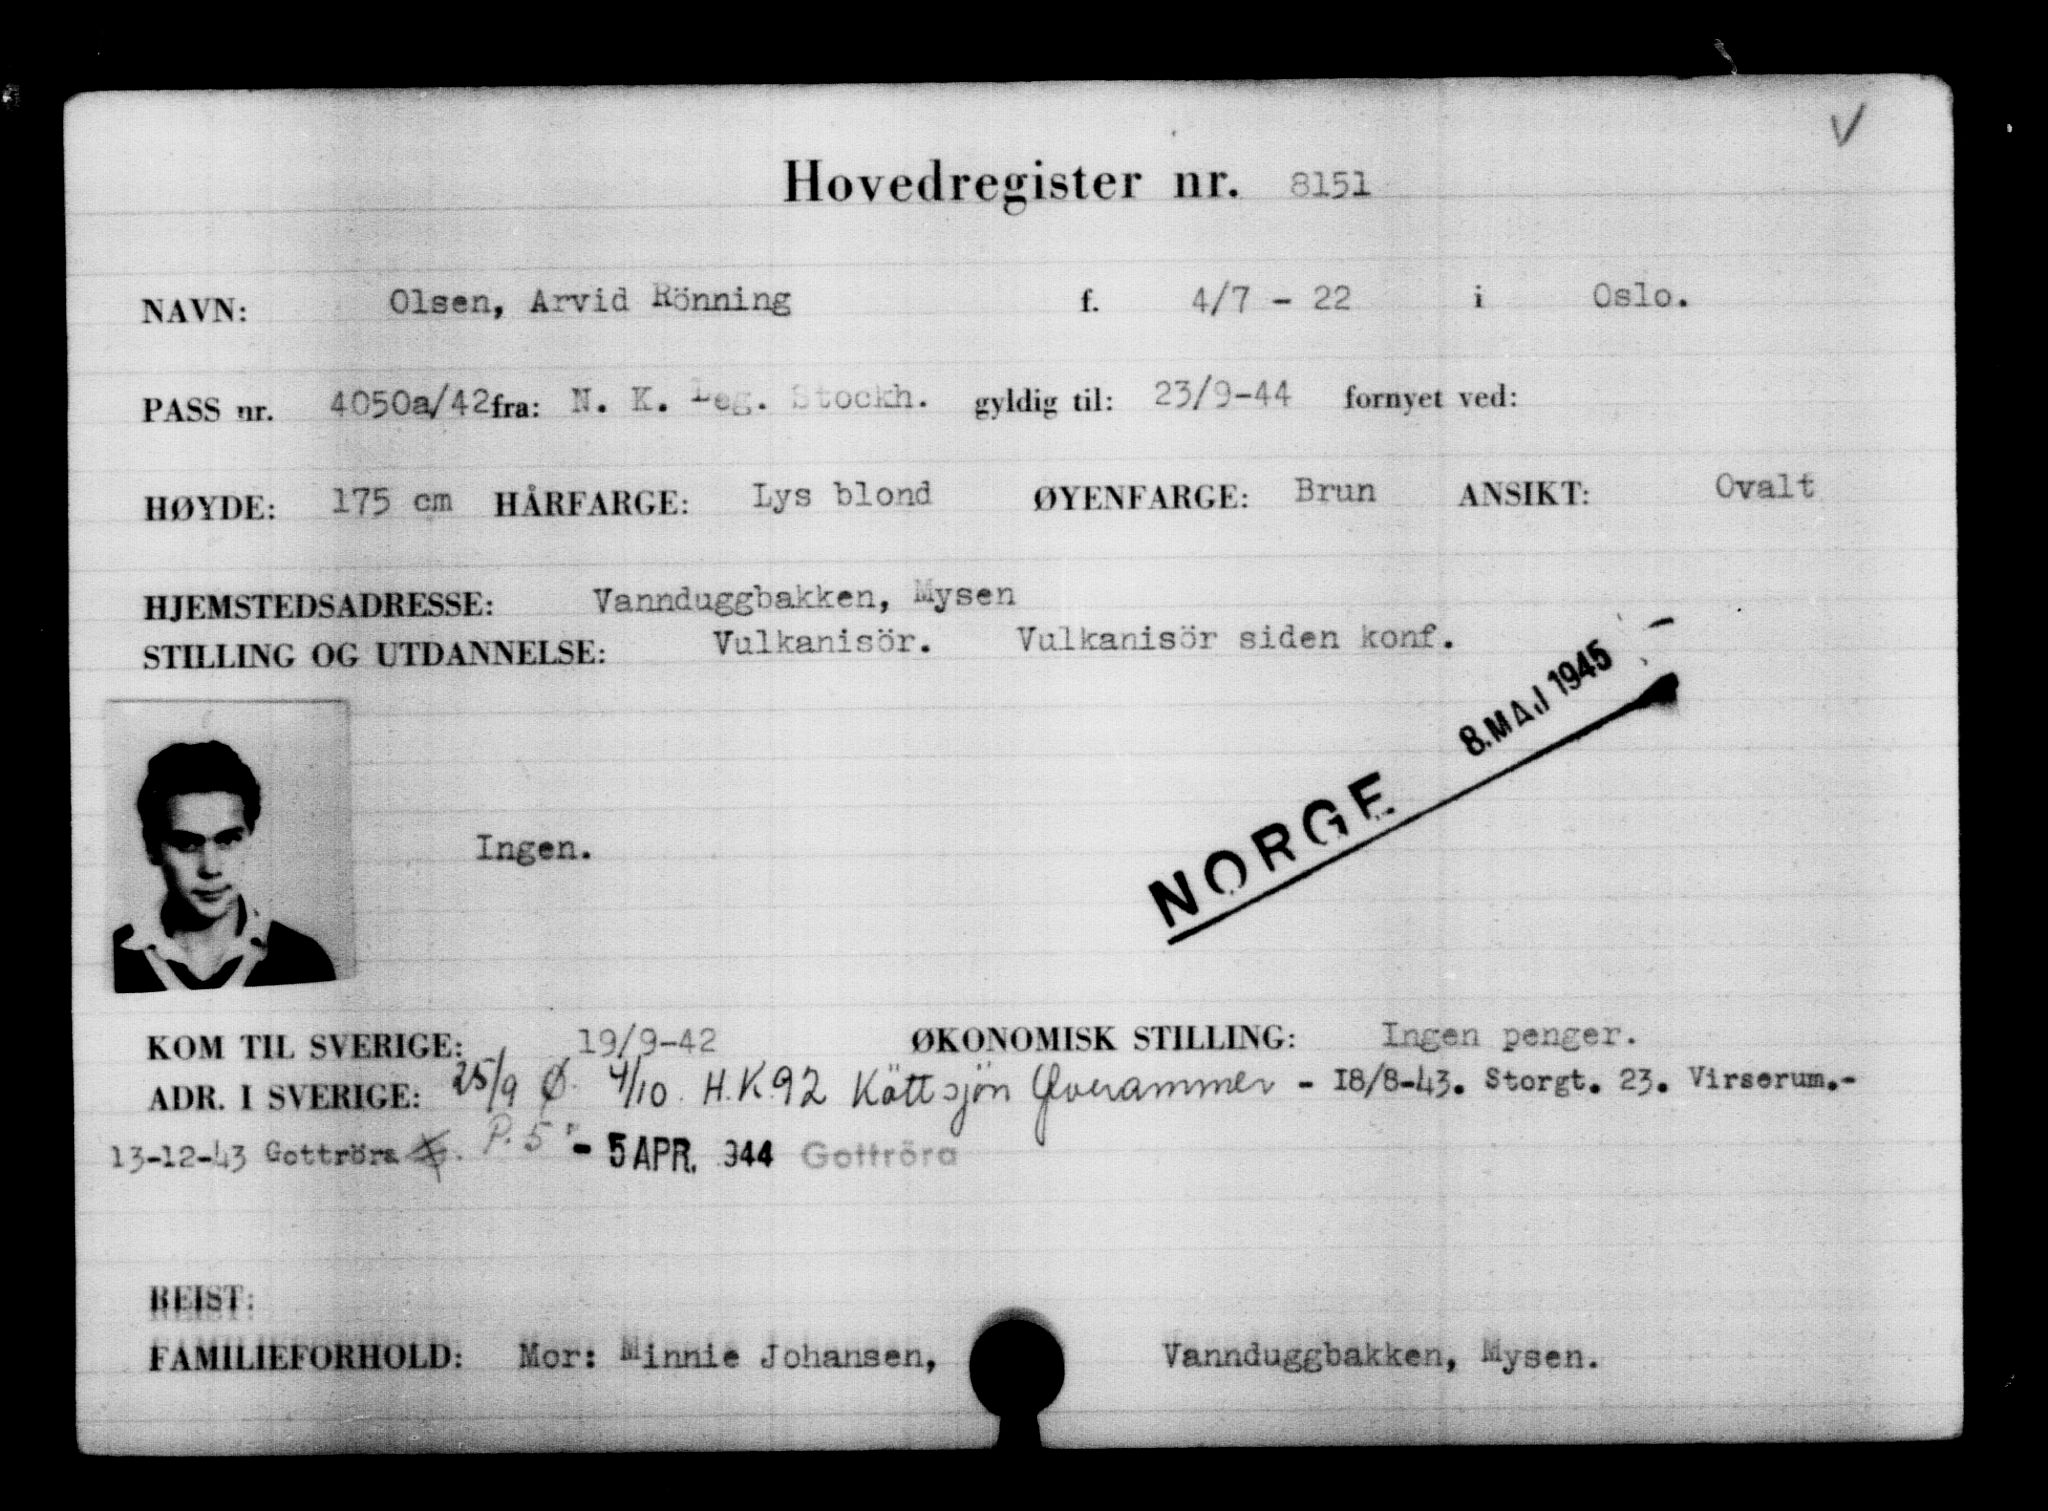 Hovedregister nr. 8151
NAVN: Olsen, Arvid Rönning f. 4/7 - 22 i Oslo.
PASS nr. 4050a/42 fra: N. K. Leg. Stockh. gyldig til: 23/9-44 fornyet ved:
HØYDE: 175 cm HÅRFARGE: Lys blond ØYENFARGE: Brun ANSIKT: Ovalt
HJEMSTEDSADRESSE: Vannduggbakken, Mysen
STILLING OG UTDANNELSE: Vulkanisör. Vulkanisör siden konf.
8. MAJ 1945
NORGE
Ingen.
KOM TIL SVERIGE: 19/9-42 ØKONOMISK STILLING: Ingen penger.
ADR. I SVERIGE: 25/9 Ø. 4/10. H.K.92 Köttsjön Överammer - 18/8-43. Storgt. 23. Virserum.-
13-12-43 Gottröra P. 5 - 5 APR. 944 Gottröra
REIST:
FAMILIEFORHOLD: Mor: Minnie Johansen, Vannduggbakken, Mysen.